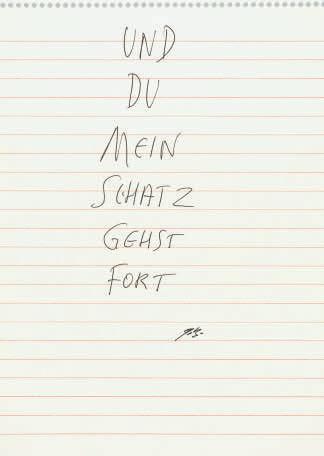 UND
DU
MEIN
SCHATZ
GEHST
FORT